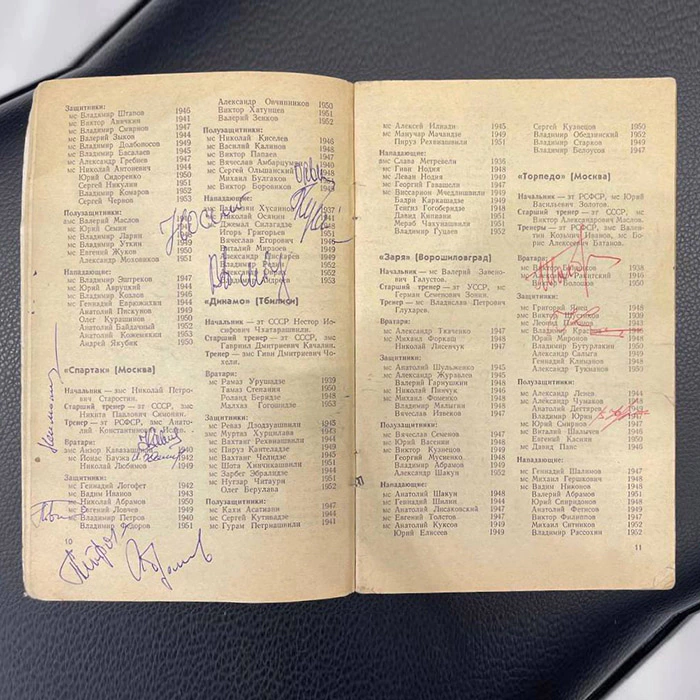 Защитники:
мс Владимир Штапов 1946
мс Виктор Аничкин 1941
мс Владимир Смирнов 1947
мс Валерий Зыков 1944
мс Владимир Долбоносов 1949
мс Владимир Басалаев 1945
мс Александр Гребнев 1947
мс Николай Антоневич 1944
мс Юрий Сидоров 1950
Сергей Никулин 1951
Владимир Комаров 1952
Сергей Чернов 1953
Полузащитники:
мс Валерий Маслов
мс Юрий Семин
мс Владимир Ларин
мс Владимир Уткин 1949
мс Евгений Жуков 1950
Александр Маховиков 1951
Нападающие:
мс Владимир Эштреков 1947
мс Юрий Авруцкий 1944
мс Владимир Козлов 1946
мс Геннадий Еврюжихин 1944
Анатолий Пискунов 1949
Олег Курашинов 1950
Анатолий Байдачный 1952
Анатолий Кожемякин 1953
Андрей Якубик 1950
«Спартак» (Москва)
Начальник — змс Николай Петрович Старостин.
Старший тренер — зт СССР, змс
Никита Павлович Симонян.
Тренер — зт РСФСР, змс Анатолий Константинович
Вратари:
змс Анзор Кавазашвили 1940
мс Йонас Баужа
Николай Любимов 1949
Защитники:
мс Геннадий Логофет 1942
мс Вадим Иванов 1943
мс Николай Абрамов 1950
мс Евгений Ловчев 1949
мс Владимир Петров 1940
мс Владимир 1951
10
Александр Овчинников 1950
Виктор Хатунцев 1951
Валерий Зенков 1952
Полузащитники:
мс Николай Киселев 1946
мс Василий Калинов 1948
мс Виктор Папаев
мс Вячеслав Амбарцумян
мс Сергей Ольшанский
мс Михаил Булгаков
мс Виктор Боровиков
Нападающие:
мс Галимзян Хусаинов 1937
мс Николай Осянин 1941
мс Джемал Силагадзе
Игорь Григорьев 1951
Вячеслав Егорович
Виталий Мирзоев
Александр
Владимир
«Динамо» (Тбилиси)
Начальник — зт СССР Нестор Иосифович Чхатарашвили.
Старший тренер — зт СССР, змс
Гавриил Дмитриевич Качалин.
Тренер — змс Гиви Дмитриевич Чохели.
Вратари:
мс Рамаз Урушадзе 1939
Тамаз Степания 1950
Роланд Беридзе 1948
Малхаз Гогошидзе 1953
Защитники:
мс Реваз Дзодзуашвили 1945
змс Муртаз Хурцилава 1943
мс Вахтанг Рехвиашвили 1944
мс Пируз Кантеладзе
мс Вахтанг Челидзе 1945
мс Шота Хинчикашвили 1951
мс Заур Эбралидзе 1944
мс Нугзар Читаури 1951
Олег Берулава 1952
Полузащитники:
мс Кахи Асатиани 1947
мс Сергей Кутивадзе 1944
мс Гурам Петриашвили 1941
мс Алексей Илиади 1945
мс Манучар Мачаидзе 1949
Пируз Рехвиашвили 1951
Нападающие:
змс Слава Метревели 1936
мс Гиви Нодия 1948
мс Леван Нодия 1949
мс Георгий Гавашели 1947
мс Виссарион Мчедлишвили 1949
Бадри Каркашадзе 1949
Тенгиз Гогоберидзе 1948
Давид Кипиани 1951
Мераб Чахунашвили 1951
Владимир Гуцаев 1952
«Заря» (Ворошиловград)
Начальник — мс Валерий Завенович Галустов.
Старший тренер — зт УССР, мс
Герман Семенович Зонин.
Тренер — мс Владислав Петрович
Глухарев.
Вратари:
мс Александр Ткаченко 1947
мс Михаил Форкаш 1948
Николай Лисенчук 1947
Защитники:
мс Анатолий Шульженко 1945
мс Александр Журавлев 1945
мс Валерий Гармушкин 1948
мс Николай Пинчук 1946
мс Михаил Фоменко 1948
Владимир Малыгин 1948
Вячеслав Извеков 1947
Полузащитники:
мс Вячеслав Семенов 1947
мс Юрий Васенин 1948
мс Виктор Кузнецов 1949
Георгий Мусиенко 1948
Владимир Абрамов 1949
Алексей Шакун 1951
Нападающие:
мс Анатолий Шакун 1948
мс Геннадий Шилин 1944
мс Анатолий Лисаковский 1947
мс Евгений Толстов 1947
мс Анатолий Куксов 1949
Юрий Елисеев 1949
Сергей Кузнецов 1950
Владимир Обединский 1952
Владимир Старков 1949
Владимир Белоусов 1947
«Торпедо» (Москва)
Начальник — зт РСФСР, мс Юрий
Васильевич Золотов.
Старший тренер — зт СССР, мс
Виктор Александрович Маслов.
Тренеры — зт РСФСР, змс Валентин Козьмич Иванов, мс Борис Алексеевич Батанов.
Вратари:
мс Виктор Банников 1938
мс Александр Ракитский 1946
Виктор Волошин 1950
Защитники:
мс Григорий Янец 1948
мс Виктор Шустиков 1939
мс Леонид Пахомов 1943
мс Владимир Краснов
Юрий Миронов 1948
мс Владимир Бутурлакин 1949
мс Александр Салыга 1949
мс Геннадий Климанов 1948
мс Александр Тукманов 1950
Полузащитники:
мс Александр Ленев 1944
мс Александр Чумаков 1948
Анатолий Дегтярев 1949
мс Владимир Юрин
мс Юрий Смирнов 1947
мс Виталий Шалычев 1946
Евгений Каснян 1950
мс Дэвид Паис 1946
Нападающие:
мс Геннадий Шалимов 1947
мс Михаил Гершкович 1948
мс Вадим Никонов 1948
Валерий Абрамов 1951
мс Юрий Спиридонов 1948
мс Анатолий Фетисов 1949
Виктор Филиппов 1947
мс Михаил Ситников 1952
мс Владимир Рассохин 1952
11